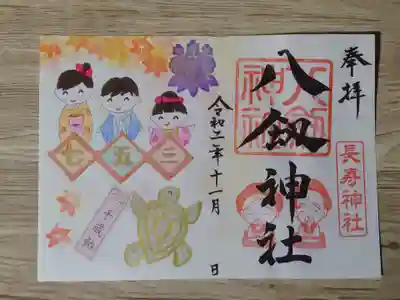 奉拝
八剱神社
八剱神社
長寿神社
令和二年十一月 日
七五三
千歳飴